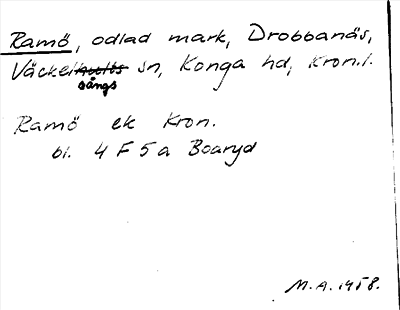 Ramö, odlad mark, Drobbanäs,
Väckelsångs sn, Konga hd, Kron.l.
Ramö ek Kron.
bl. 4 F 5 a Boaryd
M.A. 1958.